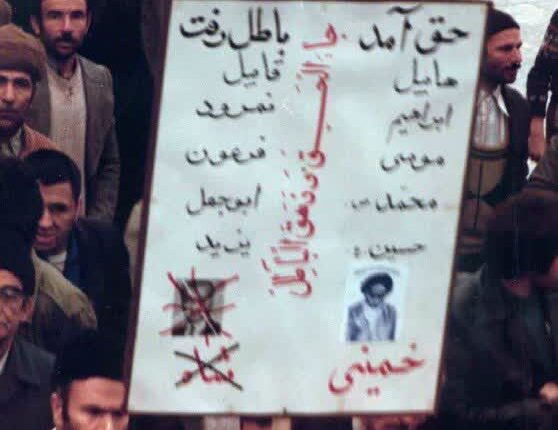 حق آمد باطل رفت
هابیل قابیل
ابراهیم نمرود
موسی فرعون
محمد ص ابوجهل
حسین ع یزید
خمینی شاه
جاء الحق و زهق الباطل